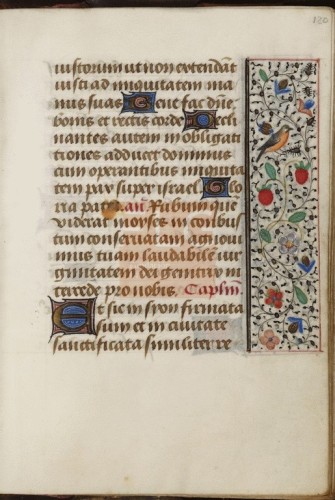 130
iustorum ut non extendāt
iusti ad iniquitatem ma
nus suas Bene fac dn̄e
bonis et rectis corde Decli
nantes autem in obligati
tiones adducet dominus
cum operantibus iniquita
tem pax super israel Glo
ria patri an̄. Rubum que
viderat moyses in conbus
tum conservatam agnoui
mus tuam laudabilē uir
ginitatem dei genitrix in
tercede pro nobis, Caplm.
Et sic in syon firmata
sum et in ciuitate
sanctificata similiter re